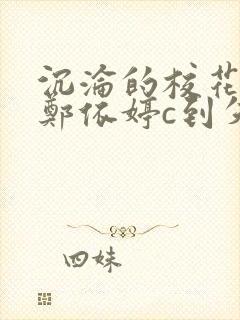 沉淪的校花
鄭依婷c到
四妹